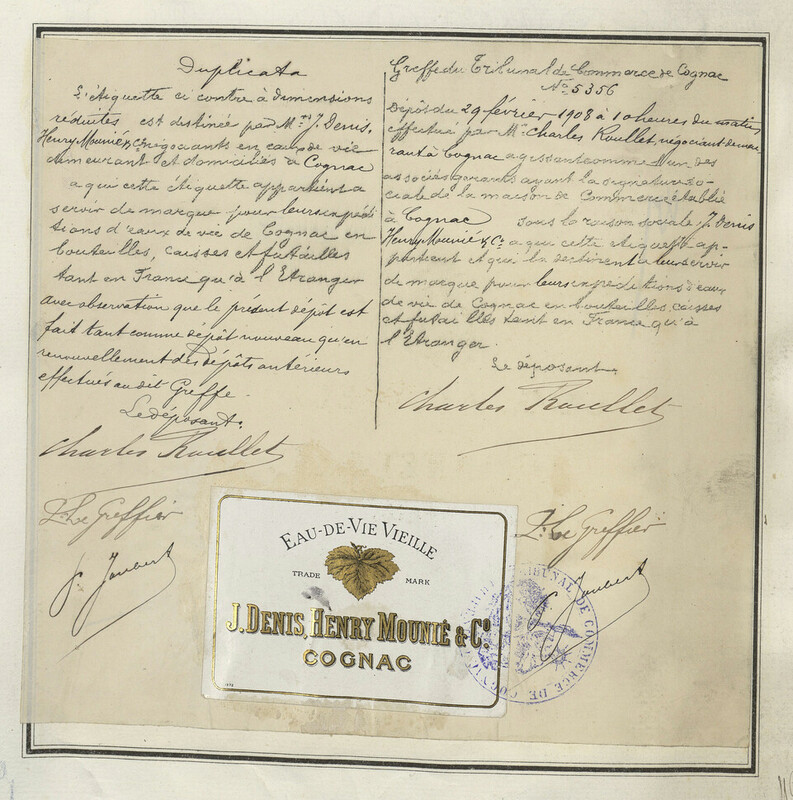 Duplicata
L'étiquette ci contre à dimensions
réduites est destinée par Mrs J. Denis,
Henry Mounié & Co négociants en eaux de vie
demeurant et domiciliés à Cognac
a qui cette étiquette appartient a
servir de marque pour leurs expédi
tions d'eaux de vie de Cognac en
bouteilles, caisses et futailles
tant en France qu'à l'Etranger
avec observation que le présent dépôt est
fait tant comme dépôt nouveau qu'en
renouvellement des dépôts antérieurs
effectués au dit Greffe.
Le déposant.
Charles Roullet
P. Le Greffier
Joubert
Greffe du Tribunal de Commerce de Cognac
No 5356
Dépôt du 29 février 1908 à 10 heures du matin
effectué par Mr Charles Roullet, négociant demeu
rant à Cognac agissant comme l'un des
associés gérants ayant la signature so-
ciale de la maison de Commerce établie
à Cognac sous la raison sociale J. Denis
Henry Mounié & Co a qui cette étiquette ap-
partient et qui la destinent a leur servir
de marque pour leurs expéditions d'eaux
de vie de Cognac en bouteilles, caisses
et futailles tant en France qu'à
l'Etranger.
Le déposant
Charles Roullet
P. Le Greffier
Joubert
EAU-DE-VIE VIEILLE
TRADE MARK
J. DENIS, HENRY MOUNIÉ & Co
COGNAC
TRIBUNAL DE COMMERCE DE COGNAC